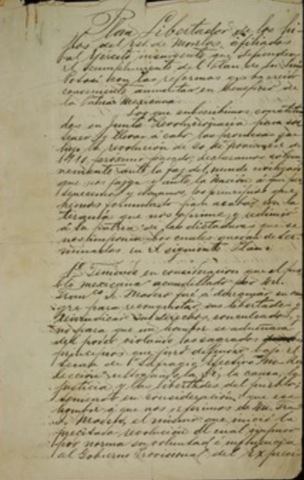 Plan Libertador de los hi-
jos del Est. de Morelos, afiliados
al Ejército insurgente que defiende
el cumplimiento del Plan de San Luis
Potosí con las reformas que ha creido
conveniente aumentar en beneficio de
la Patria Mexicana.
Los que subscribimos constitui-
dos en Junta Revolucionaria para sos-
tener y llevar á cabo las promesas que
hizo la revolución de 20 de Noviembre de
1910 proximo pasado, declaramos solem-
nemente ante la faz del mundo civilizado
que nos juzga y ante la Nación á que per-
tenecemos y amamos, los principios que
hemos formulado para acabar con la
tiranía que nos oprime y redimir
á la patria de las dictaduras que se
nos imponen los cuales quedan de-
terminados en el siguiente Plan:
1º Teniendo en consideración que el pue-
blo mexicano acaudillado por Dn.
Franco. I. Madero fué á derramar su san-
gre para reconquistar sus libertades y
reivindicar sus derechos conculcados, y
no para que un hombre se adueñara
del poder violando los sagrados
principios que juró defender bajo el
lema de "Sufragio Efectivo" "No Ree-
lección" ultrajando la fé, la causa, la
justicia y las libertades del pueblo;
teniendo en consideración: que ese
hombre á que nos referimos es Dn. Fran.
I. Madero, el mismo que inició la
precitada revolución el cual impuso
por norma su voluntad é influencia
al Gobierno Provisional del Ex Presi-